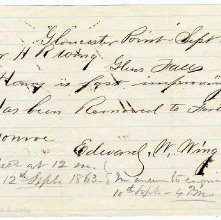 Gloucester Point Sept
H R Wing
Glens Falls
Henry is fast improving
Has been Removed to Fort
Monroe
Edward W. Wing
at 12 m.
12th Sept. 1863. In answer to enquiry
10th Sept - 4 PM